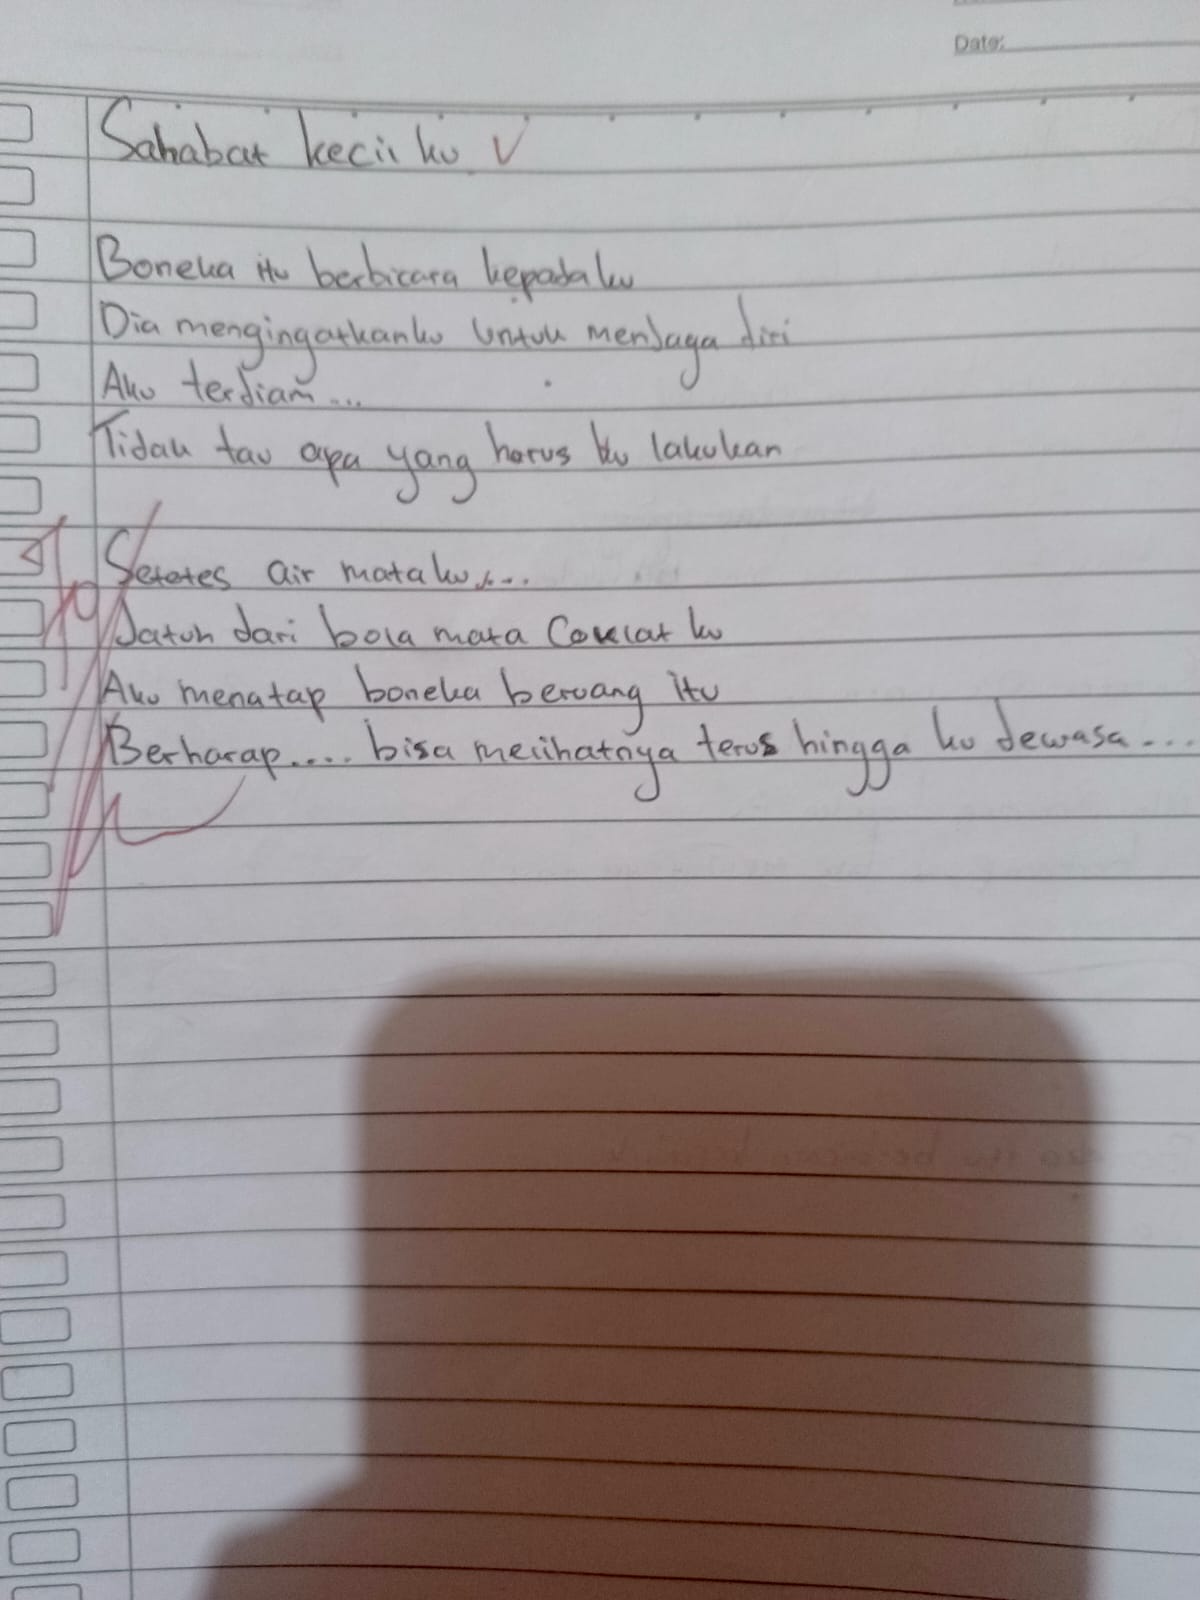 Date:
Sahabat kecil ku
Boneka itu berbicara kepadaku
Dia mengingatkanku untuk menjaga diri
Aku terdiam...
Tidak tau apa yang harus ku lakukan
Setetes air mataku...
Jatuh dari bola mata Coklat ku
Aku menatap boneka beruang itu
Berharap.... bisa melihatnya terus hingga ku dewasa...